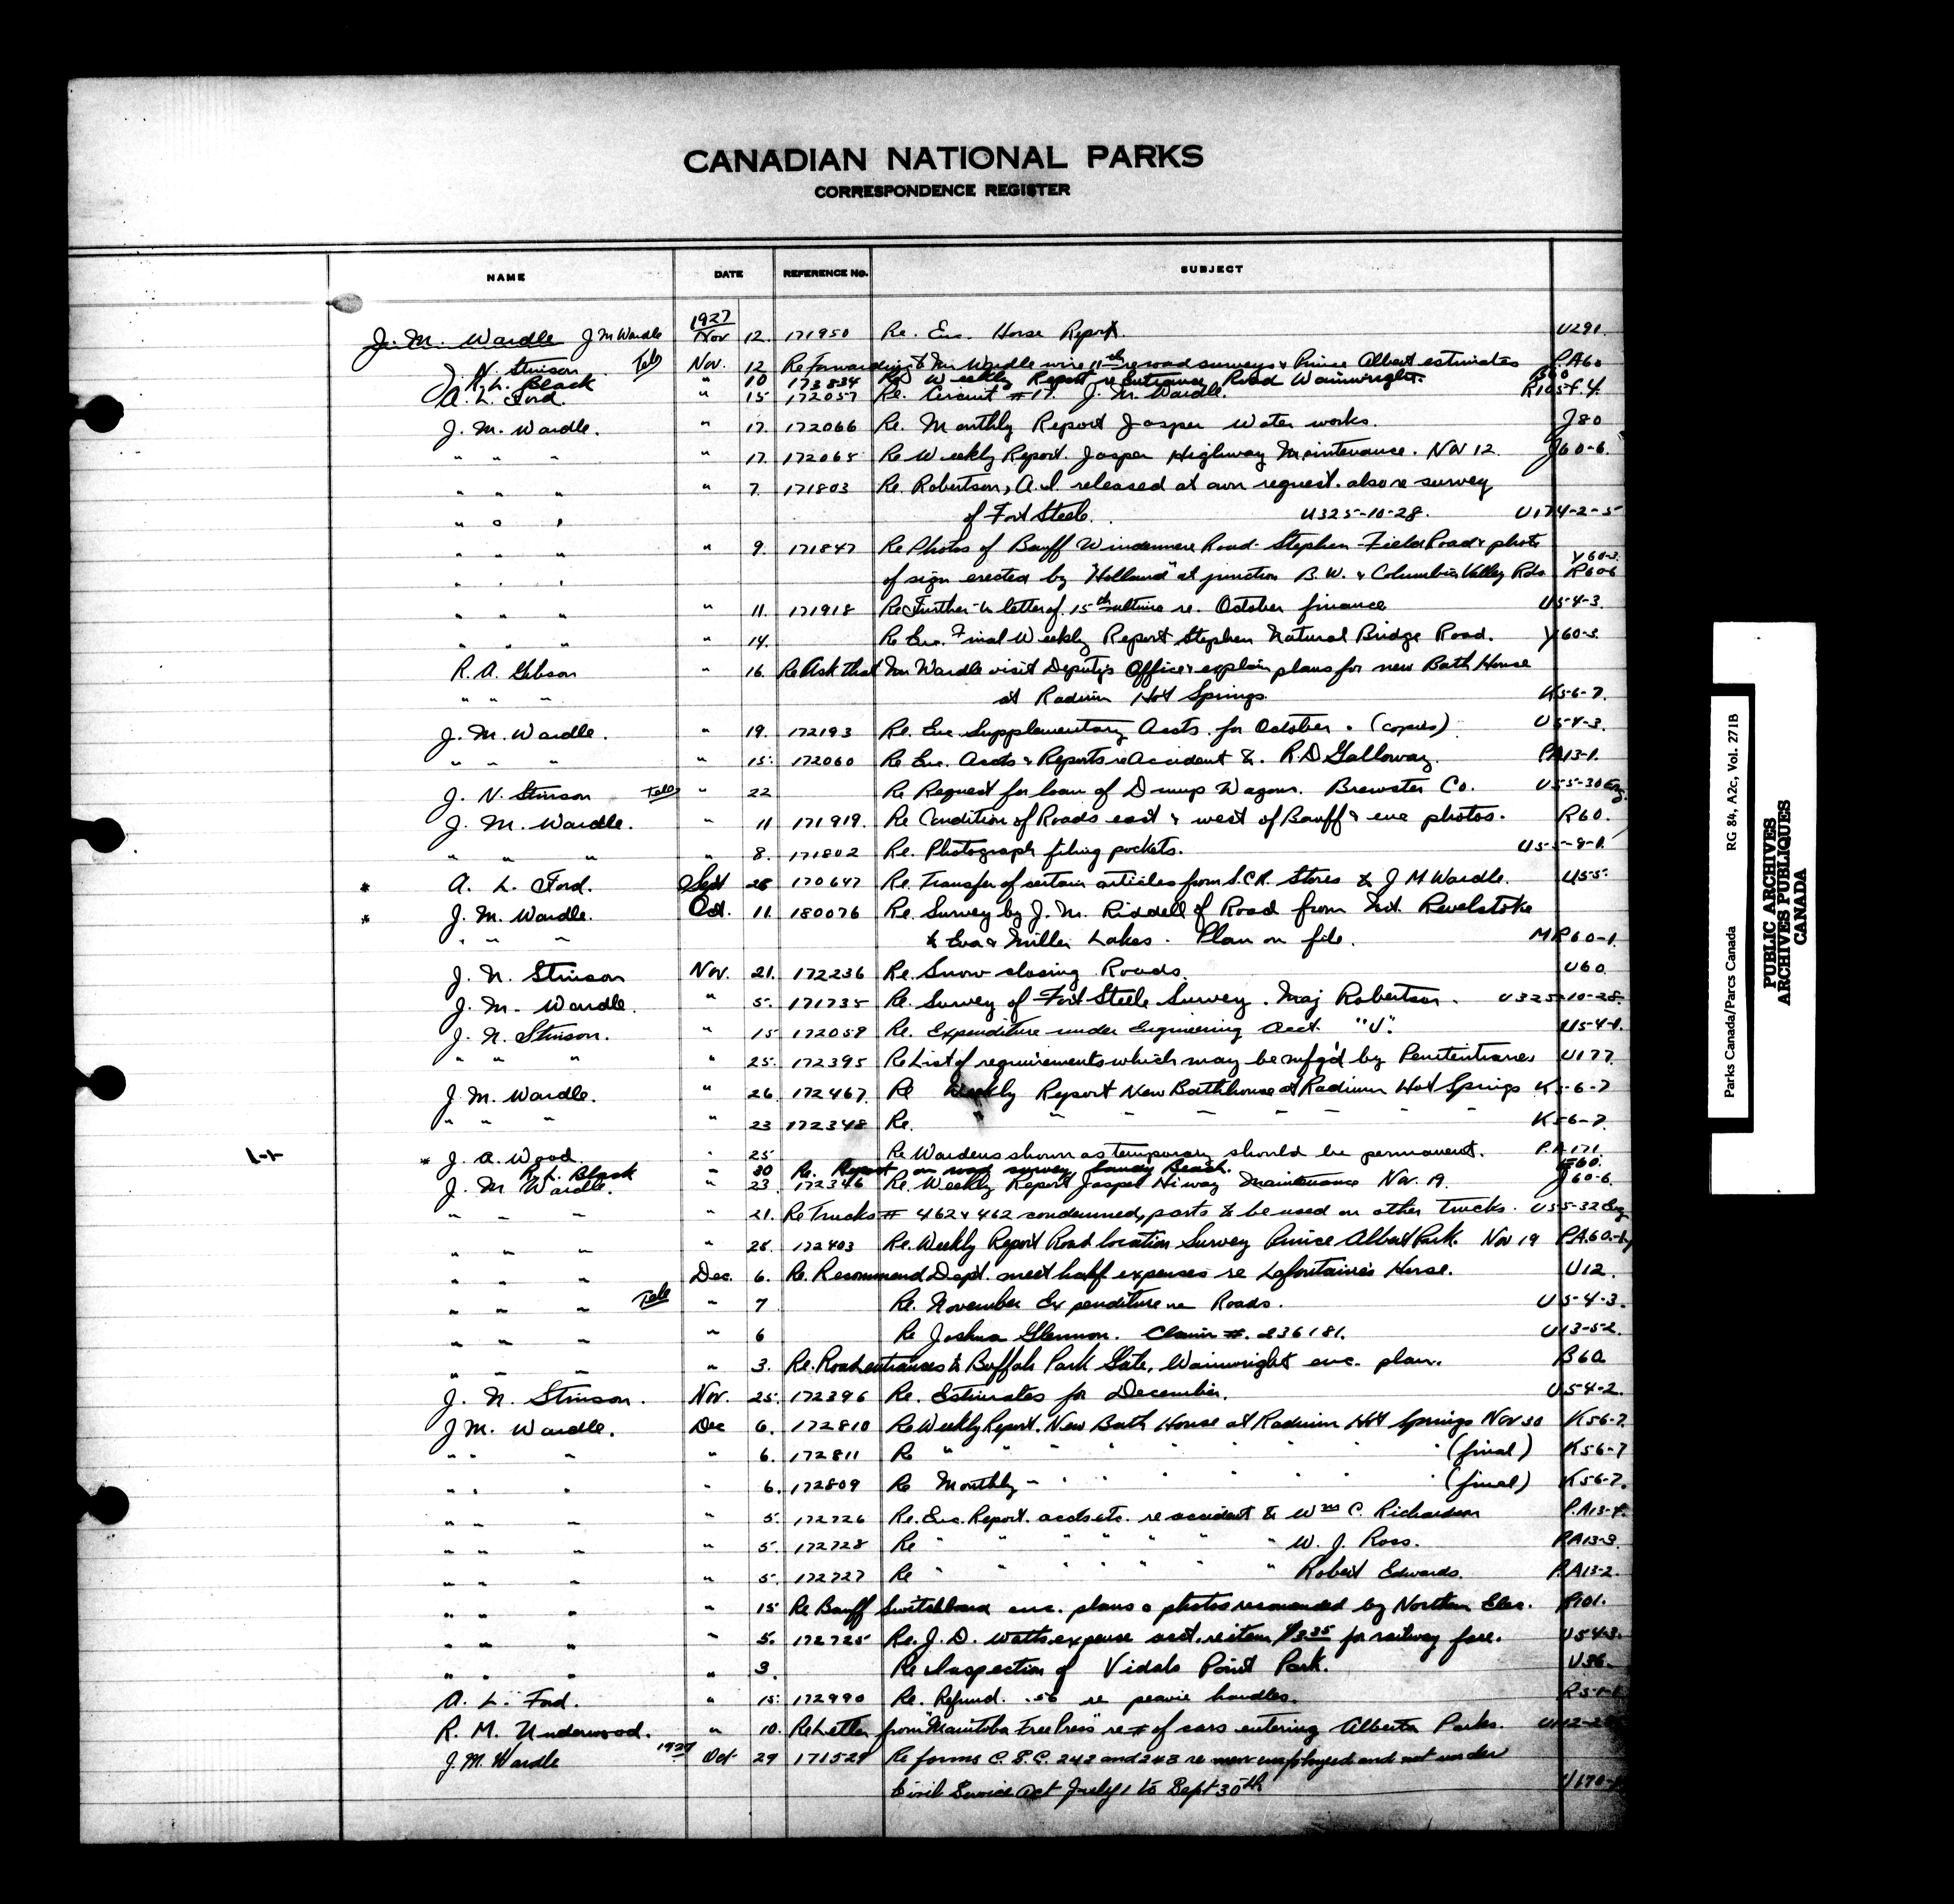 CANADIAN NATIONAL PARKS
CORRESPONDENCE REGISTER
NAME DATE REFERENCE No. SUBJECT
1927
J. M. Wardle J M Wardle Nov 12. 171950 Re. Enc. Horse Report. U291.
J. N. Stinson Tele Nov. 12 Re Forwarding to Mr Wardle wire 11th re road surveys & Prince Albert estimates P.A60
R. L. Black " 10 173834 Re Weekly Report re Entrance Road Wainwright. B60
A. L. Ford. " 15 172057 Re. Circuit #17. J. M. Wardle. R105-F.4.
J. M. Wardle. " 17. 172066 Re. Monthly Report Jasper Water works. J80
" " " " 17. 172065 Re Weekly Report. Jasper Highway Maintenance. Nov 12. J60-6.
" " " " 7. 171803 Re. Robertson, A.I. released at own request. also re survey
" " " of Fort Steele. U325-10-28. U174-2-5
" " " " 9. 171847 Re Photos of Banff Windermere Road. Stephen-Field Road & photo Y60-3.
" " " of sign erected by "Holland" at junction B.W. & Columbia Valley Rds R60-6
" " " " 11. 171918 Re Further to letter of 15th ultimo re. October finance U5-4-3.
" " " " 14. Re Enc. Final Weekly Report Stephen Natural Bridge Road. Y60-3.
R. A. Gibson " 16. Re Ask that Mr Wardle visit Deputy's Office & explain plans for new Bath House
" " " at Radium Hot Springs. K56-7.
J. M. Wardle. " 19. 172193 Re. Enc Supplementary Accts. for October. (copies) U5-4-3.
" " " " 15. 172060 Re Enc. Accts & Reports re Accident to. R.D Galloway. PA13-1.
J. N. Stinson Tele " 22 Re Request for loan of Dump Wagons. Brewster Co. U55-30 Eng.
J. M. Wardle. " 11 171919. Re Condition of Roads east & west of Banff & enc photos. R60.
" " " " 8. 171802 Re. Photograph filing pockets. U5-5-9-1.
* A. L. Ford. Sept 28 170647 Re. Transfer of certain articles from S.C.R. Stores to J M Wardle. U55.
* J. M. Wardle. Oct. 11. 180076 Re. Survey by J. M. Riddell of Road from Mt. Revelstoke
" " " to Eva & Miller Lakes. Plan on file. MR60-1.
J. N. Stinson Nov. 21. 172236 Re. Snow closing Roads. U60.
J. M. Wardle. " 5. 171735 Re. Survey of Fort Steele Survey. Maj Robertson. U325-10-28.
J. N. Stinson. " 15 172059 Re. Expenditure under Engineering Acct. "U". U5-4-1.
" " " " 25. 172395 Re List of requirements which may be mfg'd by Penitentiaries U177.
J. M. Wardle. " 26 172467. Re Weekly Report New Bathhouse at Radium Hot Springs K56-7
" " " " 23 172348 Re. " " " " " " " K56-7.
* J. A. Wood. " 25 Re Wardens shown as temporary should be permanent. P.A171.
R. L. Black " 30 Re. Report on road survey Sandy Beach. E60.
J. M Wardle. " 23. 172346 Re. Weekly Report Jasper Hiway Maintenance Nov. 19. J60-6.
" " " " 21. Re Trucks # 462 & 462 condemned, parts to be used on other trucks. U55-32 Eng
" " " " 25. 172403 Re. Weekly Report Road location Survey Prince Albert Park. Nov 19 P.A60-1
" " " Dec. 6. Re. Recommend Dept. meet half expenses re Lafontaine's Horse. U12.
" " " Tele " 7 Re. November Expenditure re Roads. U5-4-3.
" " " " 6 Re Joshua Glennon. Claim #. 236181. U13-52.
" " " " 3. Re. Road entrances to Buffalo Park Gate, Wainwright enc. plan. B60
J. N. Stinson. Nov. 25. 172396 Re. Estimates for December. U54-2.
J M. Wardle. Dec 6. 172810 Re Weekly Report. New Bath House at Radium Hot Springs Nov 30 K56-7
" " " " 6. 172811 Re " " " " " " " (final) K56-7
" " " " 6. 172809 Re Monthly " " " " " " (final) K56-7.
" " " " 5. 172726 Re. Enc. Report. accts etc. re accident to Wm C. Richardson P.A13-4.
" " " " 5. 172728 Re " " " " " " W. J. Ross. P.A13-3.
" " " " 5. 172727 Re " " " " " " Robert Edwards. P.A13-2.
" " " " 15 Re Banff Switchboard enc. plans & photos recommended by Northern Elec. R101.
" " " " 5. 172725 Re. J. D. Watts. expense acct. re item $3.35 for railway fare. U54-3.
" " " " 3. Re Inspection of Vidals Point Park. U36.
A. L. Ford. " 15. 172990 Re. Refund. .56 re peavie handles. R5-1-1
R. M. Underwood. " 10. Re Letter from "Manitoba Free Press" re # of cars entering Alberta Parks.
J. M. Wardle 1927 Oct 29 171529 Re forms C.S.C. 242 and 243 re men employed and not under
Civil Service Act July 1 to Sept 30th U170-
Parks Canada/Parcs Canada RG 84, A2c, Vol. 271B
PUBLIC ARCHIVES
ARCHIVES PUBLIQUES
CANADA